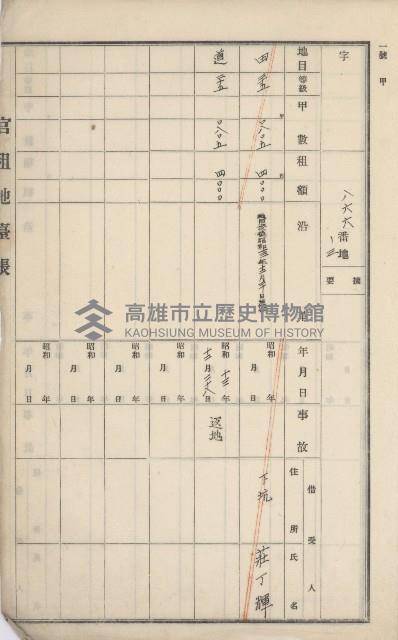 一號甲
字
八六六番地
ノ三
摘要
地目
等級
甲數
租額
沿革
年月日
事故
借受人
住所
氏名
田
甲
〇八〇五
円
四〇〇〇
昭和 年 月 日
下坑
莊丁輝
道
〇八〇五
四〇〇〇
昭和十三年
十二月二十八日
返地
昭和 年 月 日
昭和 年 月 日
昭和 年 月 日
昭和 年 月 日
官租地臺帳
高雄市立歷史博物館
KAOHSIUNG MUSEUM OF HISTORY